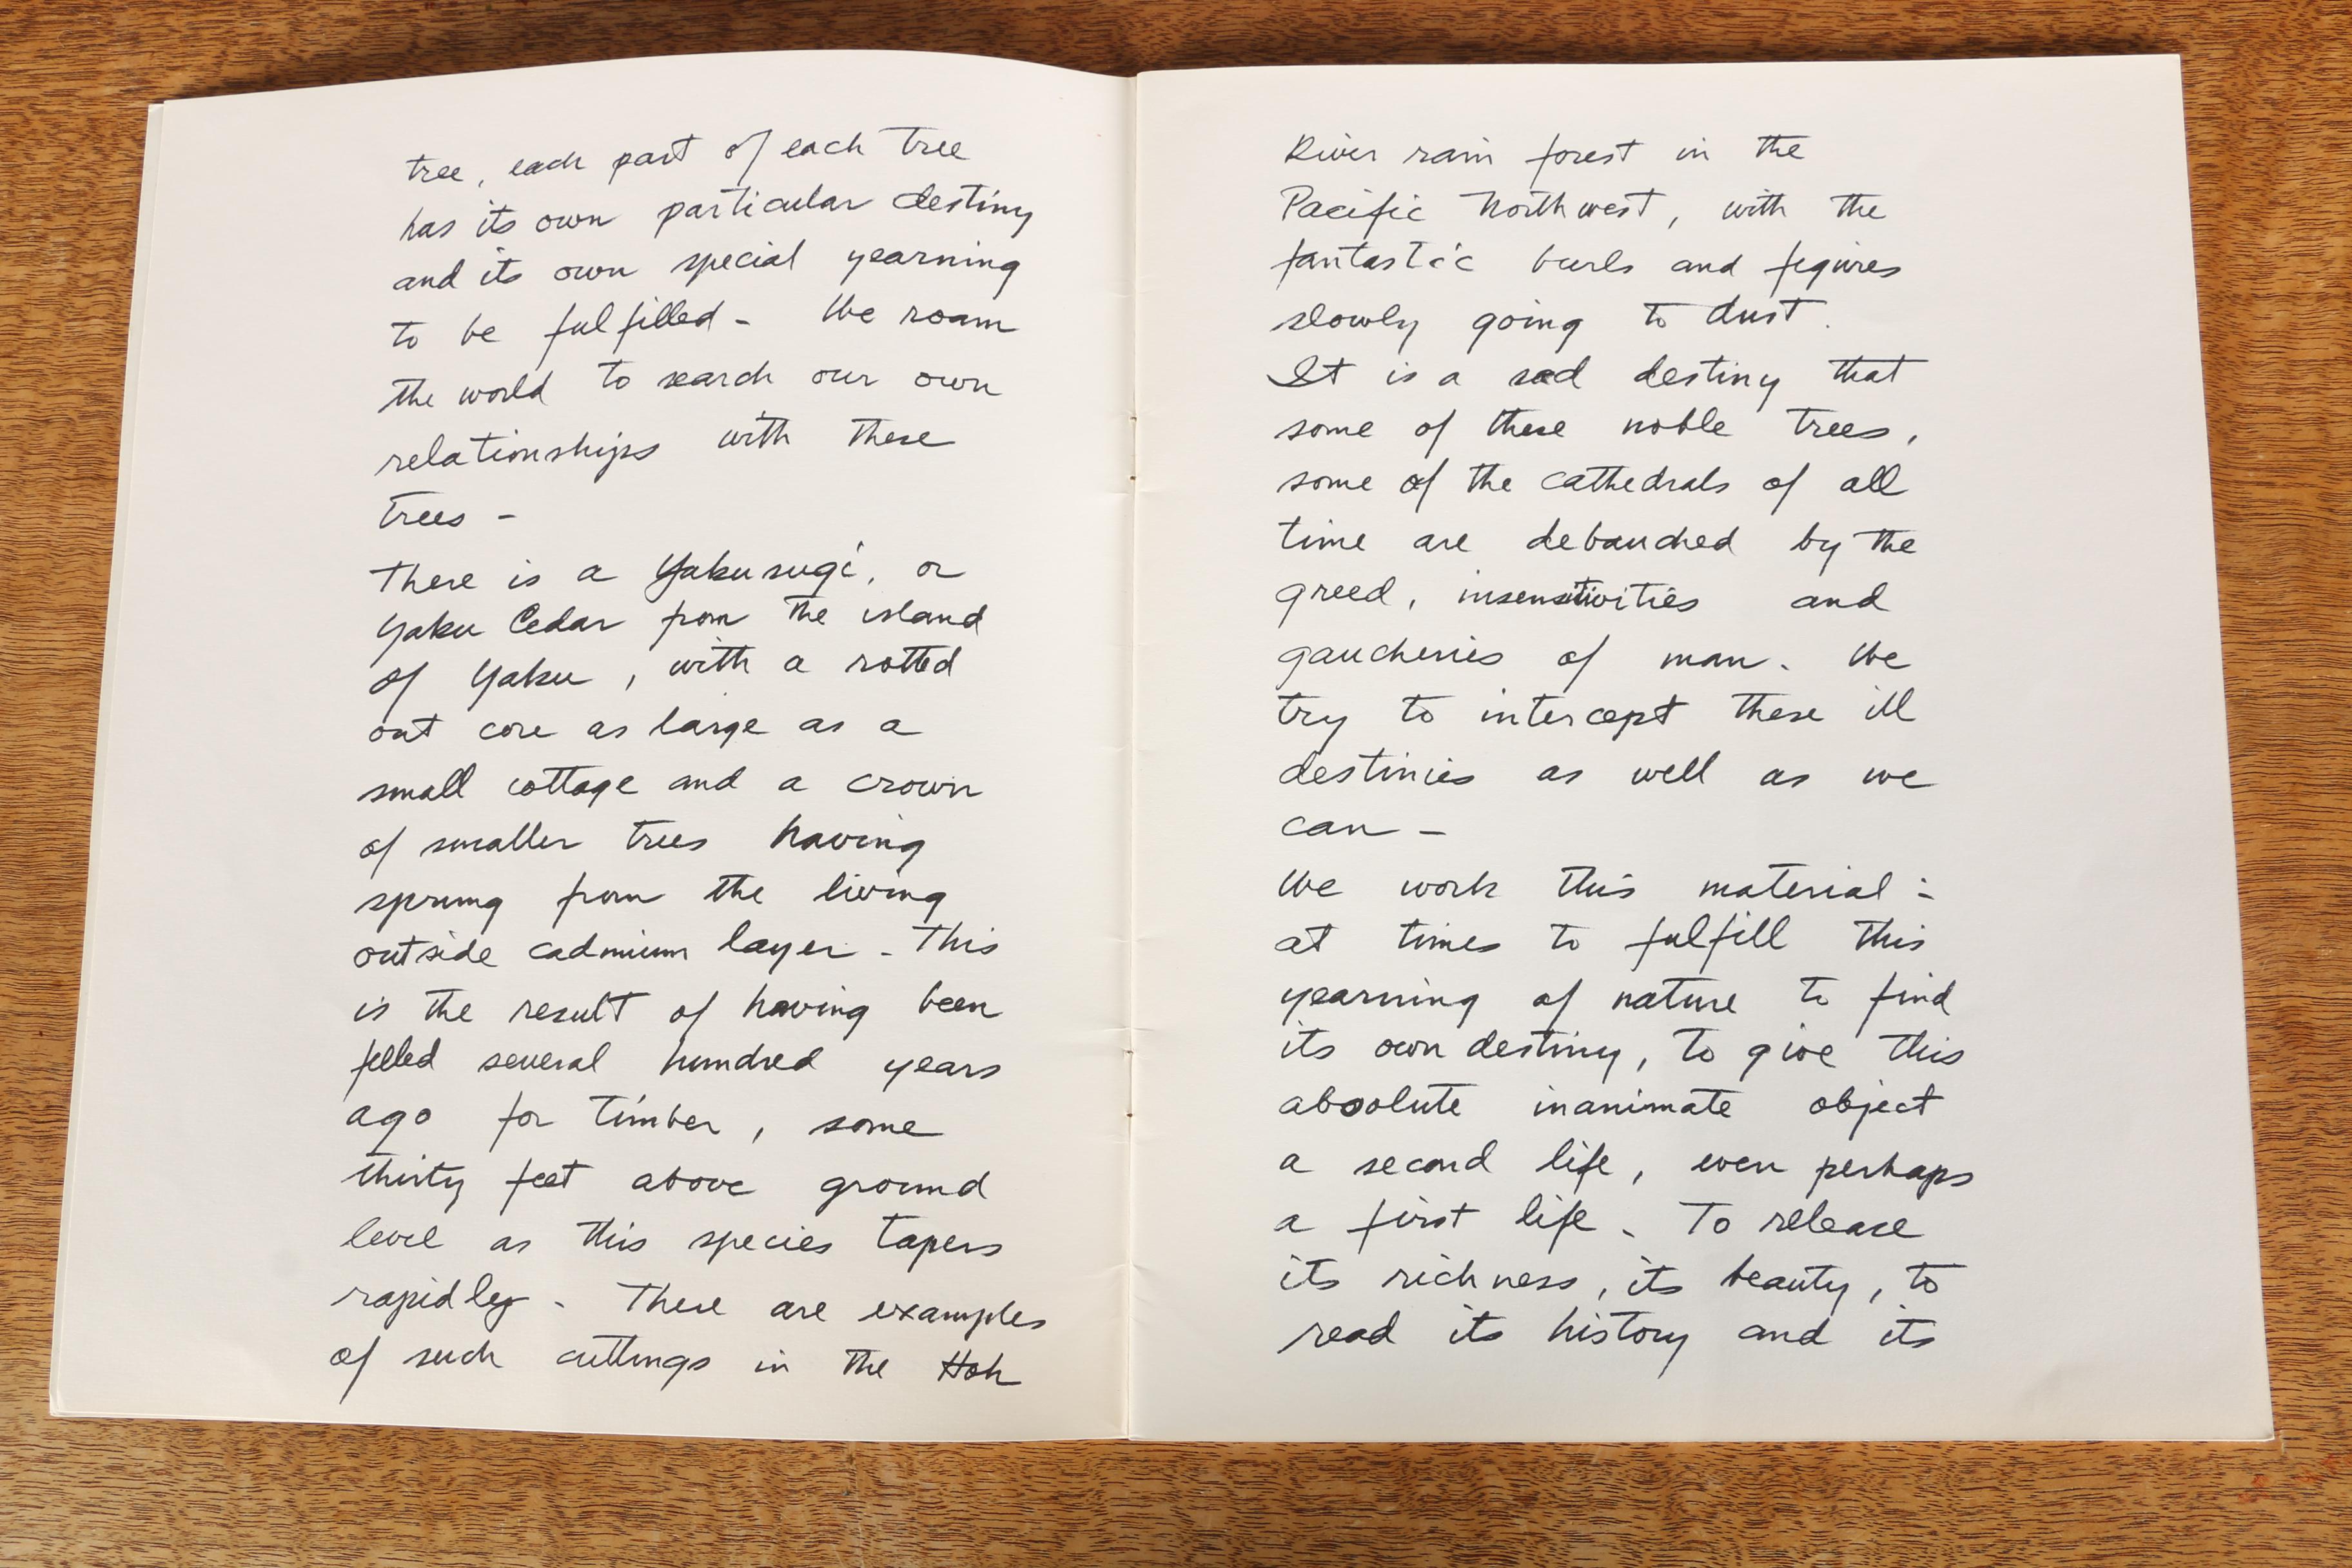 tree, each part of each tree
has its own particular destiny
and its own special yearning
to be fulfilled - We roam
the world to search our own
relationships with these
trees -
There is a Yakusugi, or
Yaku Cedar from the island
of Yaku, with a rotted
out core as large as a
small cottage and a crown
of smaller trees having
sprung from the living
outside cadmium layer. This
is the result of having been
felled several hundred years
ago for timber, some
thirty feet above ground
level as this species tapers
rapidly - There are examples
of such cuttings in the Hoh
River rain forest in the
Pacific Northwest, with the
fantastic burls and figures
slowly going to dust.
It is a sad destiny that
some of these noble trees,
some of the cathedrals of all
time are debauched by the
greed, insensitivities and
gaucheries of man. We
try to intercept these ill
destinies as well as we
can -
We work this material:
at times to fulfill this
yearning of nature to find
its own destiny, to give this
absolute inanimate object
a second life, even perhaps
a first life. To release
its richness, its beauty, to
read its history and its